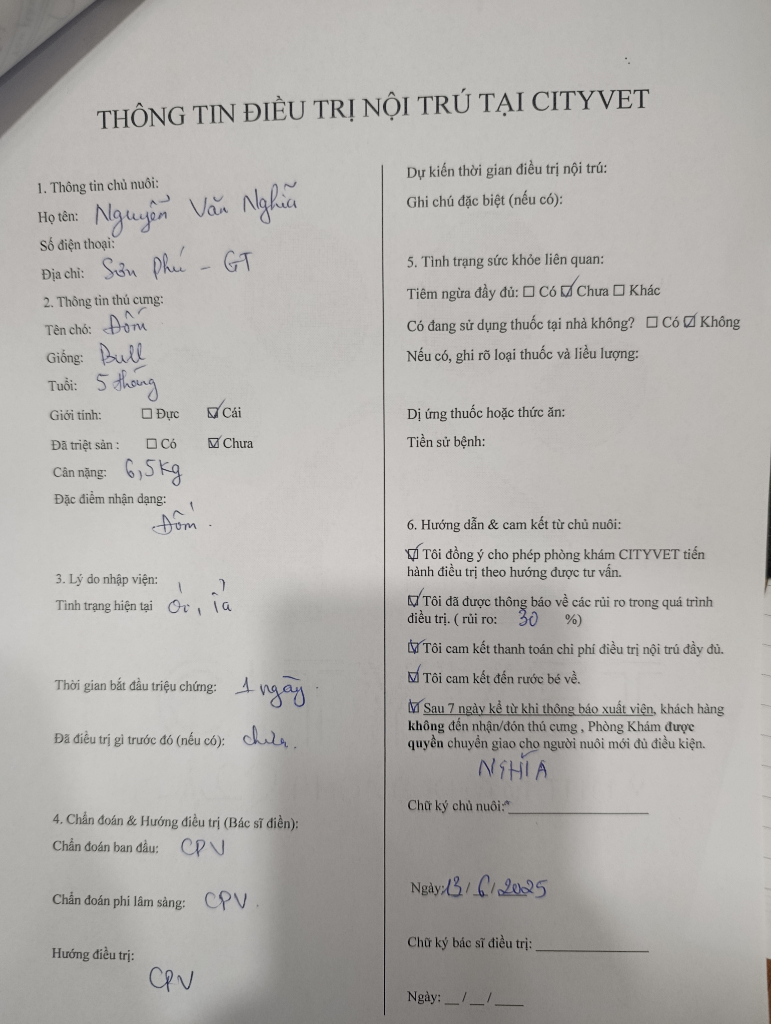 THÔNG TIN ĐIỀU TRỊ NỘI TRÚ TẠI CITYVET
1. Thông tin chủ nuôi:
Họ tên: Nguyễn Văn Nghĩa
Số điện thoại:
Địa chỉ: Sơn Phú - GT
2. Thông tin thú cưng:
Tên chó: Đốm
Giống: Bull
Tuổi: 5 tháng
Giới tính: ☐ Đực ☑ Cái
Đã triệt sản : ☐ Có ☑ Chưa
Cân nặng: 6,5kg
Đặc điểm nhận dạng:
Đốm.
3. Lý do nhập viện:
Tình trạng hiện tại Ói, ỉa
Thời gian bắt đầu triệu chứng: 1 ngày.
Đã điều trị gì trước đó (nếu có): chưa.
4. Chẩn đoán & Hướng điều trị (Bác sĩ điền):
Chẩn đoán ban đầu: CPV
Chẩn đoán phi lâm sàng: CPV.
Hướng điều trị:
CPV
Dự kiến thời gian điều trị nội trú:
Ghi chú đặc biệt (nếu có):
5. Tình trạng sức khỏe liên quan:
Tiêm ngừa đầy đủ: ☐ Có ☑ Chưa ☐ Khác
Có đang sử dụng thuốc tại nhà không? ☐ Có ☑ Không
Nếu có, ghi rõ loại thuốc và liều lượng:
Dị ứng thuốc hoặc thức ăn:
Tiền sử bệnh:
6. Hướng dẫn & cam kết từ chủ nuôi:
☑ Tôi đồng ý cho phép phòng khám CITYVET tiến
hành điều trị theo hướng được tư vấn.
☑ Tôi đã được thông báo về các rủi ro trong quá trình
điều trị. ( rủi ro: 30 %)
☑ Tôi cam kết thanh toán chi phí điều trị nội trú đầy đủ.
☑ Tôi cam kết đến rước bé về.
☑ Sau 7 ngày kể từ khi thông báo xuất viện, khách hàng
không đến nhận/đón thú cưng , Phòng Khám được
quyền chuyển giao cho người nuôi mới đủ điều kiện.
NGHĨA
Chữ ký chủ nuôi: ____________________
Ngày: 13 / 6 / 2025
Chữ ký bác sĩ điều trị: ________________
Ngày: __ / __ / ____